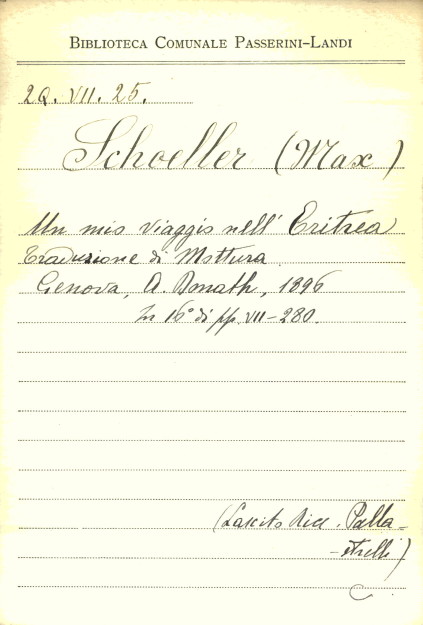 BIBLIOTECA COMUNALE PASSERINI-LANDI
2Q. VII. 25.
Schoeller (Max)
Un mio viaggio nell' Eritrea
Traduzione di Mottura
Genova, A. Donath, 1896
In 16° di pp. VII-280.
(Lascito Ricc. Palla-
-strelli)